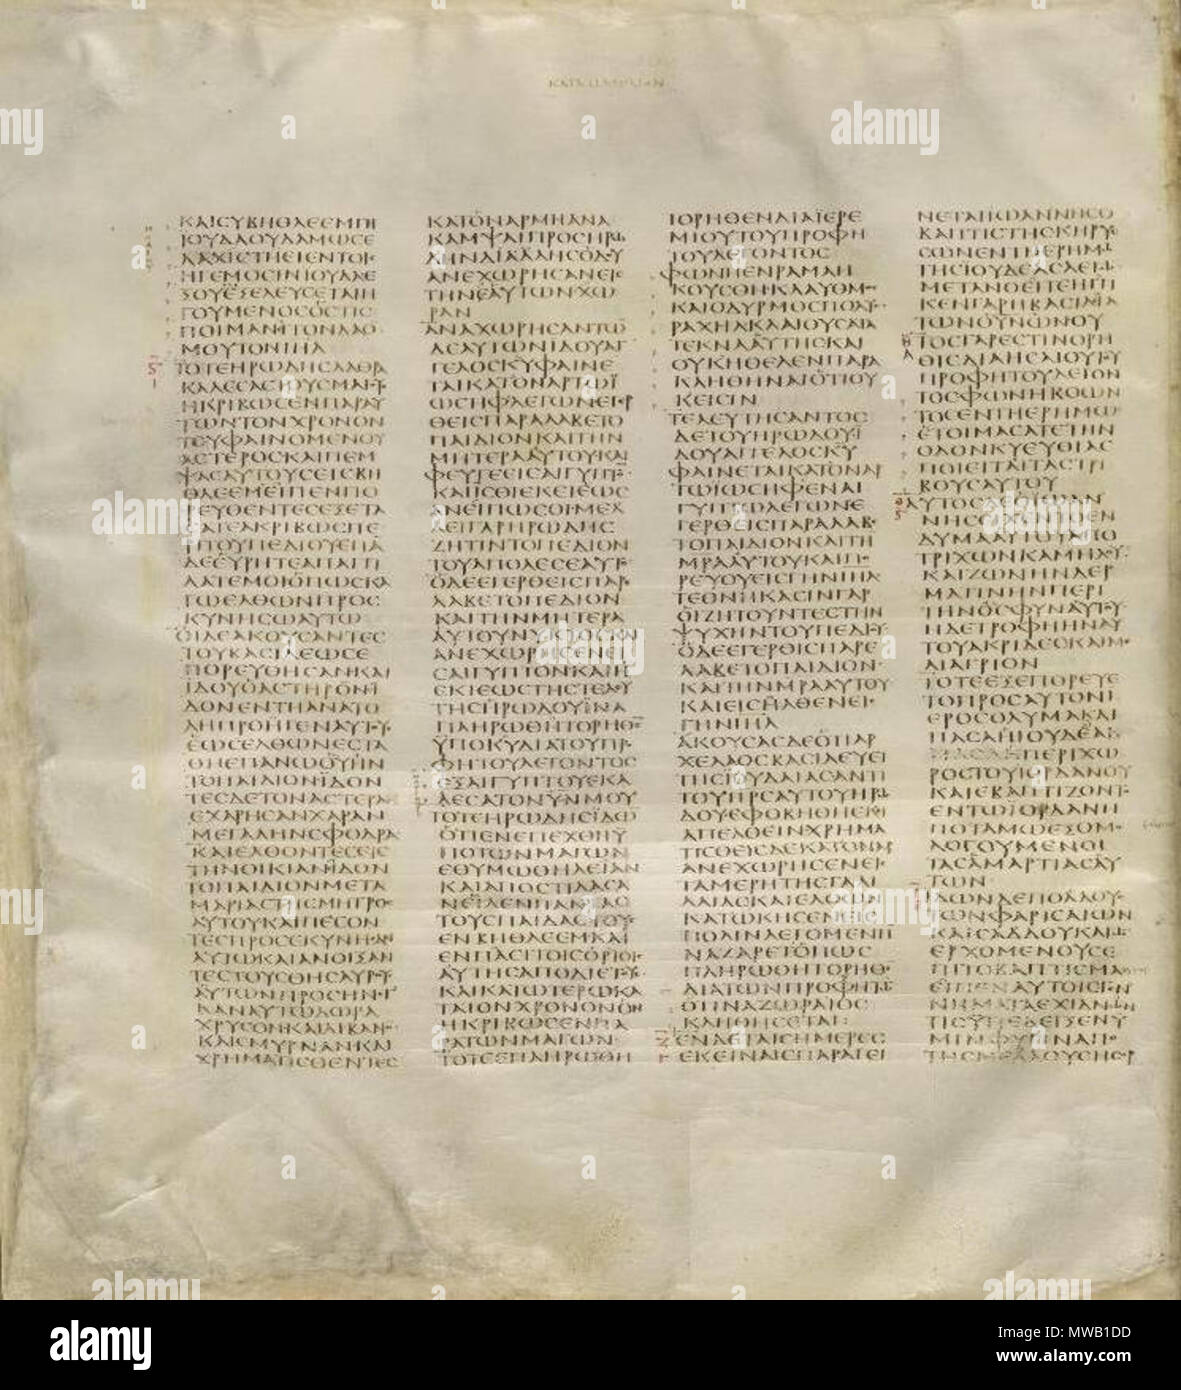 ΚΑΤΑ ΜΑΘΘΑΙΟΝ
ΚΑΙϹΥΒΗΘΛΕΕΜΓΗ
ΙΟΥΔΑΟΥΔΑΜΩϹΕ
ΛΑΧΙϹΤΗΕΙΕΝΤΟΙϹ
ΗΓΕΜΟϹΙΝΙΟΥΔΑΕΚ
ϹΟΥΕΞΕΛΕΥϹΕΤΑΙΗ
ΓΟΥΜΕΝΟϹΟϹΤΙϹ
ΠΟΙΜΑΝΙΤΟΝΛΑΟ
ΜΟΥΤΟΝΙΗΛ
ΤΟΤΕΗΡΩΔΗϹΛΑΘΡΑ
ΚΑΛΕϹΑϹΤΟΥϹΜΑΓΟΥϹ
ΗΚΡΙΒΩϹΕΝΠΑΡΑΥ
ΤΩΝΤΟΝΧΡΟΝΟΝ
ΤΟΥΦΑΙΝΟΜΕΝΟΥ
ΑϹΤΕΡΟϹΚΑΙΠΕΜ
ΨΑϹΑΥΤΟΥϹΕΙϹΒΗ
ΘΛΕΕΜΕΙΠΕΝΠΟ
ΡΕΥΘΕΝΤΕϹΕΞΕΤΑ
ϹΑΤΕΑΚΡΙΒΩϹΠΕ
ΡΙΤΟΥΠΕΔΙΟΥΕΠΑ
ΔΕΕΥΡΗΤΕΑΠΑΓΓΙ
ΛΑΤΕΜΟΙΟΠΩϹΚΑ
ΓΩΕΛΘΩΝΠΡΟϹ
ΚΥΝΗϹΩΑΥΤΩ
ΟΙΔΕΑΚΟΥϹΑΝΤΕϹ
ΤΟΥΒΑϹΙΛΕΩϹΕ
ΠΟΡΕΥΘΗϹΑΝΚΑΙ
ΙΔΟΥΟΑϹΤΗΡΟΝΙ
ΔΟΝΕΝΤΗΑΝΑΤΟ
ΛΗΠΡΟΗΓΕΝΑΥΤΟΥϹ
ΕΩϹΕΛΘΩΝΕϹΤΑ
ΘΗΕΠΑΝΩΟΥΗΝ
ΤΟΠΑΙΔΙΟΝΙΔΟΝ
ΤΕϹΔΕΤΟΝΑϹΤΕΡΑ
ΕΧΑΡΗϹΑΝΧΑΡΑΝ
ΜΕΓΑΛΗΝϹΦΟΔΡΑ
ΚΑΙΕΛΘΟΝΤΕϹΕΙϹ
ΤΗΝΟΙΚΙΑΝΙΔΟΝ
ΤΟΠΑΙΔΙΟΝΜΕΤΑ
ΜΑΡΙΑϹΤΗϹΜΗΤΡΟϹ
ΑΥΤΟΥΚΑΙΠΕϹΟΝ
ΤΕϹΠΡΟϹΕΚΥΝΗϹΑΝ
ΑΥΤΩΚΑΙΑΝΟΙΞΑΝ
ΤΕϹΤΟΥϹΘΗϹΑΥΡΟΥϹ
ΑΥΤΩΝΠΡΟϹΗΝΕΓ
ΚΑΝΑΥΤΩΔΩΡΑ
ΧΡΥϹΟΝΚΑΙΛΙΒΑΝΟΝ
ΚΑΙϹΜΥΡΝΑΝΚΑΙ
ΧΡΗΜΑΤΙϹΘΕΝΤΕϹ
ΚΑΤΟΝΑΡΜΗΑΝΑ
ΚΑΜΨΑΙΠΡΟϹΗΡΩ
ΔΗΝΔΙΑΛΛΗϹΟΔΟΥ
ΑΝΕΧΩΡΗϹΑΝΕΙϹ
ΤΗΝΕΑΥΤΩΝΧΩ
ΡΑΝ
ΑΝΑΧΩΡΗϹΑΝΤΩ
ΔΕΑΥΤΩΝΙΔΟΥΑΓ
ΓΕΛΟϹΚΥΦΑΙΝΕ
ΤΑΙΚΑΤΟΝΑΡΤΩΙ
ΩϹΗΦΛΕΓΩΝΕΓΕΡ
ΘΕΙϹΠΑΡΑΛΑΒΕΤΟ
ΠΑΙΔΙΟΝΚΑΙΤΗΝ
ΜΗΤΕΡΑΑΥΤΟΥΚΑΙ
ΦΕΥΓΕΕΙϹΑΙΓΥΠΤΟΝ
ΚΑΙΙϹΘΙΕΚΕΙΕΩϹ
ΑΝΕΙΠΩϹΟΙΜΕΛ
ΛΕΙΓΑΡΗΡΩΔΗϹ
ΖΗΤΙΝΤΟΠΕΔΙΟΝ
ΤΟΥΑΠΟΛΕϹΕΑΥΤΟ
ΟΔΕΕΓΕΡΘΕΙϹΠΑΡΕ
ΛΑΒΕΤΟΠΕΔΙΟΝ
ΚΑΙΤΗΝΜΗΤΕΡΑ
ΑΥΤΟΥΝΥΚΤΟϹΚΑΙ
ΑΝΕΧΩΡΗϹΕΝΕΙ
ϹΑΙΓΥΠΤΟΝΚΑΙΗ
ΕΚΙΕΩϹΤΗϹΤΕΛΕΥ
ΤΗϹΗΡΩΔΟΥΙΝΑ
ΠΛΗΡΩΘΗΤΟΡΗΘΕ
ΥΠΟΚΥΔΙΑΤΟΥΠΡΟ
ΦΗΤΟΥΛΕΓΟΝΤΟϹ
ΕΞΑΙΓΥΠΤΟΥΕΚΑ
ΛΕϹΑΤΟΝΥΝΜΟΥ
ΤΟΤΕΗΡΩΔΗϹΙΔΩ
ΟΤΙΕΝΕΠΕΧΘΗΥ
ΠΟΤΩΝΜΑΓΩΝ
ΕΘΥΜΩΘΗΛΕΙΑΝ
ΚΑΙΑΠΟϹΤΙΛΑϹΑ
ΝΕΙΛΕΝΠΑΝΤΑϹ
ΤΟΥϹΠΑΙΔΑϹΤΟΥϹ
ΕΝΒΗΘΛΕΕΜΚΑΙ
ΕΝΠΑϹΙΤΟΙϹΟΡΙΟΙϹ
ΑΥΤΗϹΑΠΟΔΙΕΤΟΥϹ
ΚΑΙΚΑΤΩΤΕΡΩΚΑ
ΤΑΤΟΝΧΡΟΝΟΝΟΝ
ΗΚΡΙΒΩϹΕΝΠΑ
ΡΑΤΩΝΜΑΓΩΝ
ΤΟΤΕΕΠΛΗΡΩΘΗ
ΤΟΡΗΘΕΝΔΙΑΙΕΡΕ
ΜΙΟΥΤΟΥΠΡΟΦΗ
ΤΟΥΛΕΓΟΝΤΟϹ
ΦΩΝΗΕΝΡΑΜΑΗ
ΚΟΥϹΘΗΚΛΑΥΘΜΟϹ
ΚΑΙΟΔΥΡΜΟϹΠΟΛΥϹ
ΡΑΧΗΛΚΛΑΙΟΥϹΑΤΑ
ΤΕΚΝΑΑΥΤΗϹΚΑΙ
ΟΥΚΗΘΕΛΕΝΠΑΡΑ
ΚΛΗΘΗΝΑΙΟΤΙΟΥ
ΚΕΙϹΙΝ
ΤΕΛΕΥΤΗϹΑΝΤΟϹ
ΔΕΤΟΥΗΡΩΔΟΥΙ
ΔΟΥΑΓΓΕΛΟϹΚΥ
ΦΑΙΝΕΤΑΙΚΑΤΟΝΑΡ
ΤΩΙΩϹΗΦΕΝΑΙ
ΓΥΠΤΩΛΕΓΩΝΕ
ΓΕΡΘΕΙϹΠΑΡΑΛΑΒΕ
ΤΟΠΑΙΔΙΟΝΚΑΙΤΗ
ΜΡΑΑΥΤΟΥΚΑΙΠΟ
ΡΕΥΟΥΕΙϹΓΗΝΙΗΛ
ΤΕΘΝΗΚΑϹΙΝΓΑΡ
ΟΙΖΗΤΟΥΝΤΕϹΤΗΝ
ΨΥΧΗΝΤΟΥΠΕΔΙΟΥ
ΟΔΕΕΓΕΡΘΙϹΠΑΡΕ
ΛΑΒΕΤΟΠΑΙΔΙΟΝ
ΚΑΙΤΗΝΜΡΑΑΥΤΟΥ
ΚΑΙΕΙϹΗΛΘΕΝΕΙϹ
ΓΗΝΙΗΛ
ΑΚΟΥϹΑϹΔΕΟΤΙΑΡ
ΧΕΛΑΟϹΒΑϹΙΛΕΥΕΙ
ΤΗϹΙΟΥΔΑΙΑϹΑΝΤΙ
ΤΟΥΠΡϹΑΥΤΟΥΗΡΩ
ΔΟΥΕΦΟΒΗΘΗΕΚΙ
ΑΠΕΛΘΕΙΝΧΡΗΜΑ
ΤΙϹΘΕΙϹΔΕΚΑΤΟΝΑΡ
ΑΝΕΧΩΡΗϹΕΝΕΙϹ
ΤΑΜΕΡΗΤΗϹΓΑΛΙ
ΛΑΙΑϹΚΑΙΕΛΘΩΝ
ΚΑΤΩΚΗϹΕΝΕΙϹ
ΠΟΛΙΝΛΕΓΟΜΕΝΗ
ΝΑΖΑΡΕΤΟΠΩϹ
ΠΛΗΡΩΘΗΤΟΡΗΘΕ
ΔΙΑΤΩΝΠΡΟΦΗΤΩ
ΟΤΙΝΑΖΩΡΑΙΟϹ
ΚΛΗΘΗϹΕΤΑΙ
ΕΝΔΕΤΑΙϹΗΜΕΡΕϹ
ΕΚΕΙΝΑΙϹΠΑΡΑΓΕΙ
ΝΕΤΑΙΙΩΑΝΝΗϹΟ
ΒΑΠΤΙϹΤΗϹΚΗΡΥϹ
ϹΩΝΕΝΤΗΕΡΗΜΩ
ΤΗϹΙΟΥΔΕΑϹΛΕΓΩ
ΜΕΤΑΝΟΕΙΤΕΗΓΓΙ
ΚΕΝΓΑΡΗΒΑϹΙΛΙΑ
ΤΩΝΟΥΝΩΝΟΥ
ΤΟϹΓΑΡΕϹΤΙΝΟΡΗ
ΘΙϹΔΙΑΗϹΑΙΟΥΤΟΥ
ΠΡΟΦΗΤΟΥΛΕΓΟΝ
ΤΟϹΦΩΝΗΒΟΩΝ
ΤΟϹΕΝΤΗΕΡΗΜΩ
ΕΤΟΙΜΑϹΑΤΕΤΗΝ
ΟΔΟΝΚΥΕΥΘΙΑϹ
ΠΟΙΕΙΤΑΙΤΑϹΤΡΙ
ΒΟΥϹΑΥΤΟΥ
ΑΥΤΟϹΔΕΟΙΩΑΝ
ΝΗϹΕΙΧΕΝΤΟΕΝ
ΔΥΜΑΑΥΤΟΥΑΠΟ
ΤΡΙΧΩΝΚΑΜΗΛΟΥ
ΚΑΙΖΩΝΗΝΔΕΡ
ΜΑΤΙΝΗΝΠΕΡΙ
ΤΗΝΟϹΦΥΝΑΥΤΟΥ
ΗΔΕΤΡΟΦΗΗΝΑΥ
ΤΟΥΑΚΡΙΔΕϹΚΑΙΜΕ
ΛΙΑΓΡΙΟΝ
ΤΟΤΕΕΞΕΠΟΡΕΥΕ
ΤΟΠΡΟϹΑΥΤΟΝΙ
ΕΡΟϹΟΛΥΜΑΚΑΙ
ΠΑϹΑΗΙΟΥΔΕΑΚ
ΠΑϹΑΗΠΕΡΙΧΩ
ΡΟϹΤΟΥΙΟΡΔΑΝΟΥ
ΚΑΙΕΒΑΠΤΙΖΟΝΤΟ
ΕΝΤΩΙΟΡΔΑΝΗ
ΠΟΤΑΜΩΕΞΟΜΟ
ΛΟΓΟΥΜΕΝΟΙ
ΤΑϹΑΜΑΡΤΙΑϹΑΥ
ΤΩΝ
ΙΔΩΝΔΕΠΟΛΛΟΥϹ
ΤΩΝΦΑΡΙϹΑΙΩΝ
ΚΑΙϹΑΔΔΟΥΚΑΙΩ
ΕΡΧΟΜΕΝΟΥϹΕ
ΠΙΤΟΒΑΠΤΙϹΜΑ
ΕΙΠΕΝΑΥΤΟΙϹΓΕΝ
ΝΗΜΑΤΑΕΧΙΔΝΩΝ
ΤΙϹΥΠΕΔΕΙΞΕΝΥ
ΜΙΝΦΥΓΙΝΑΠΟ
ΤΗϹΜΕΛΛΟΥϹΗϹΟΡ
alamy
Image ID: MWB1DD
www.alamy.com